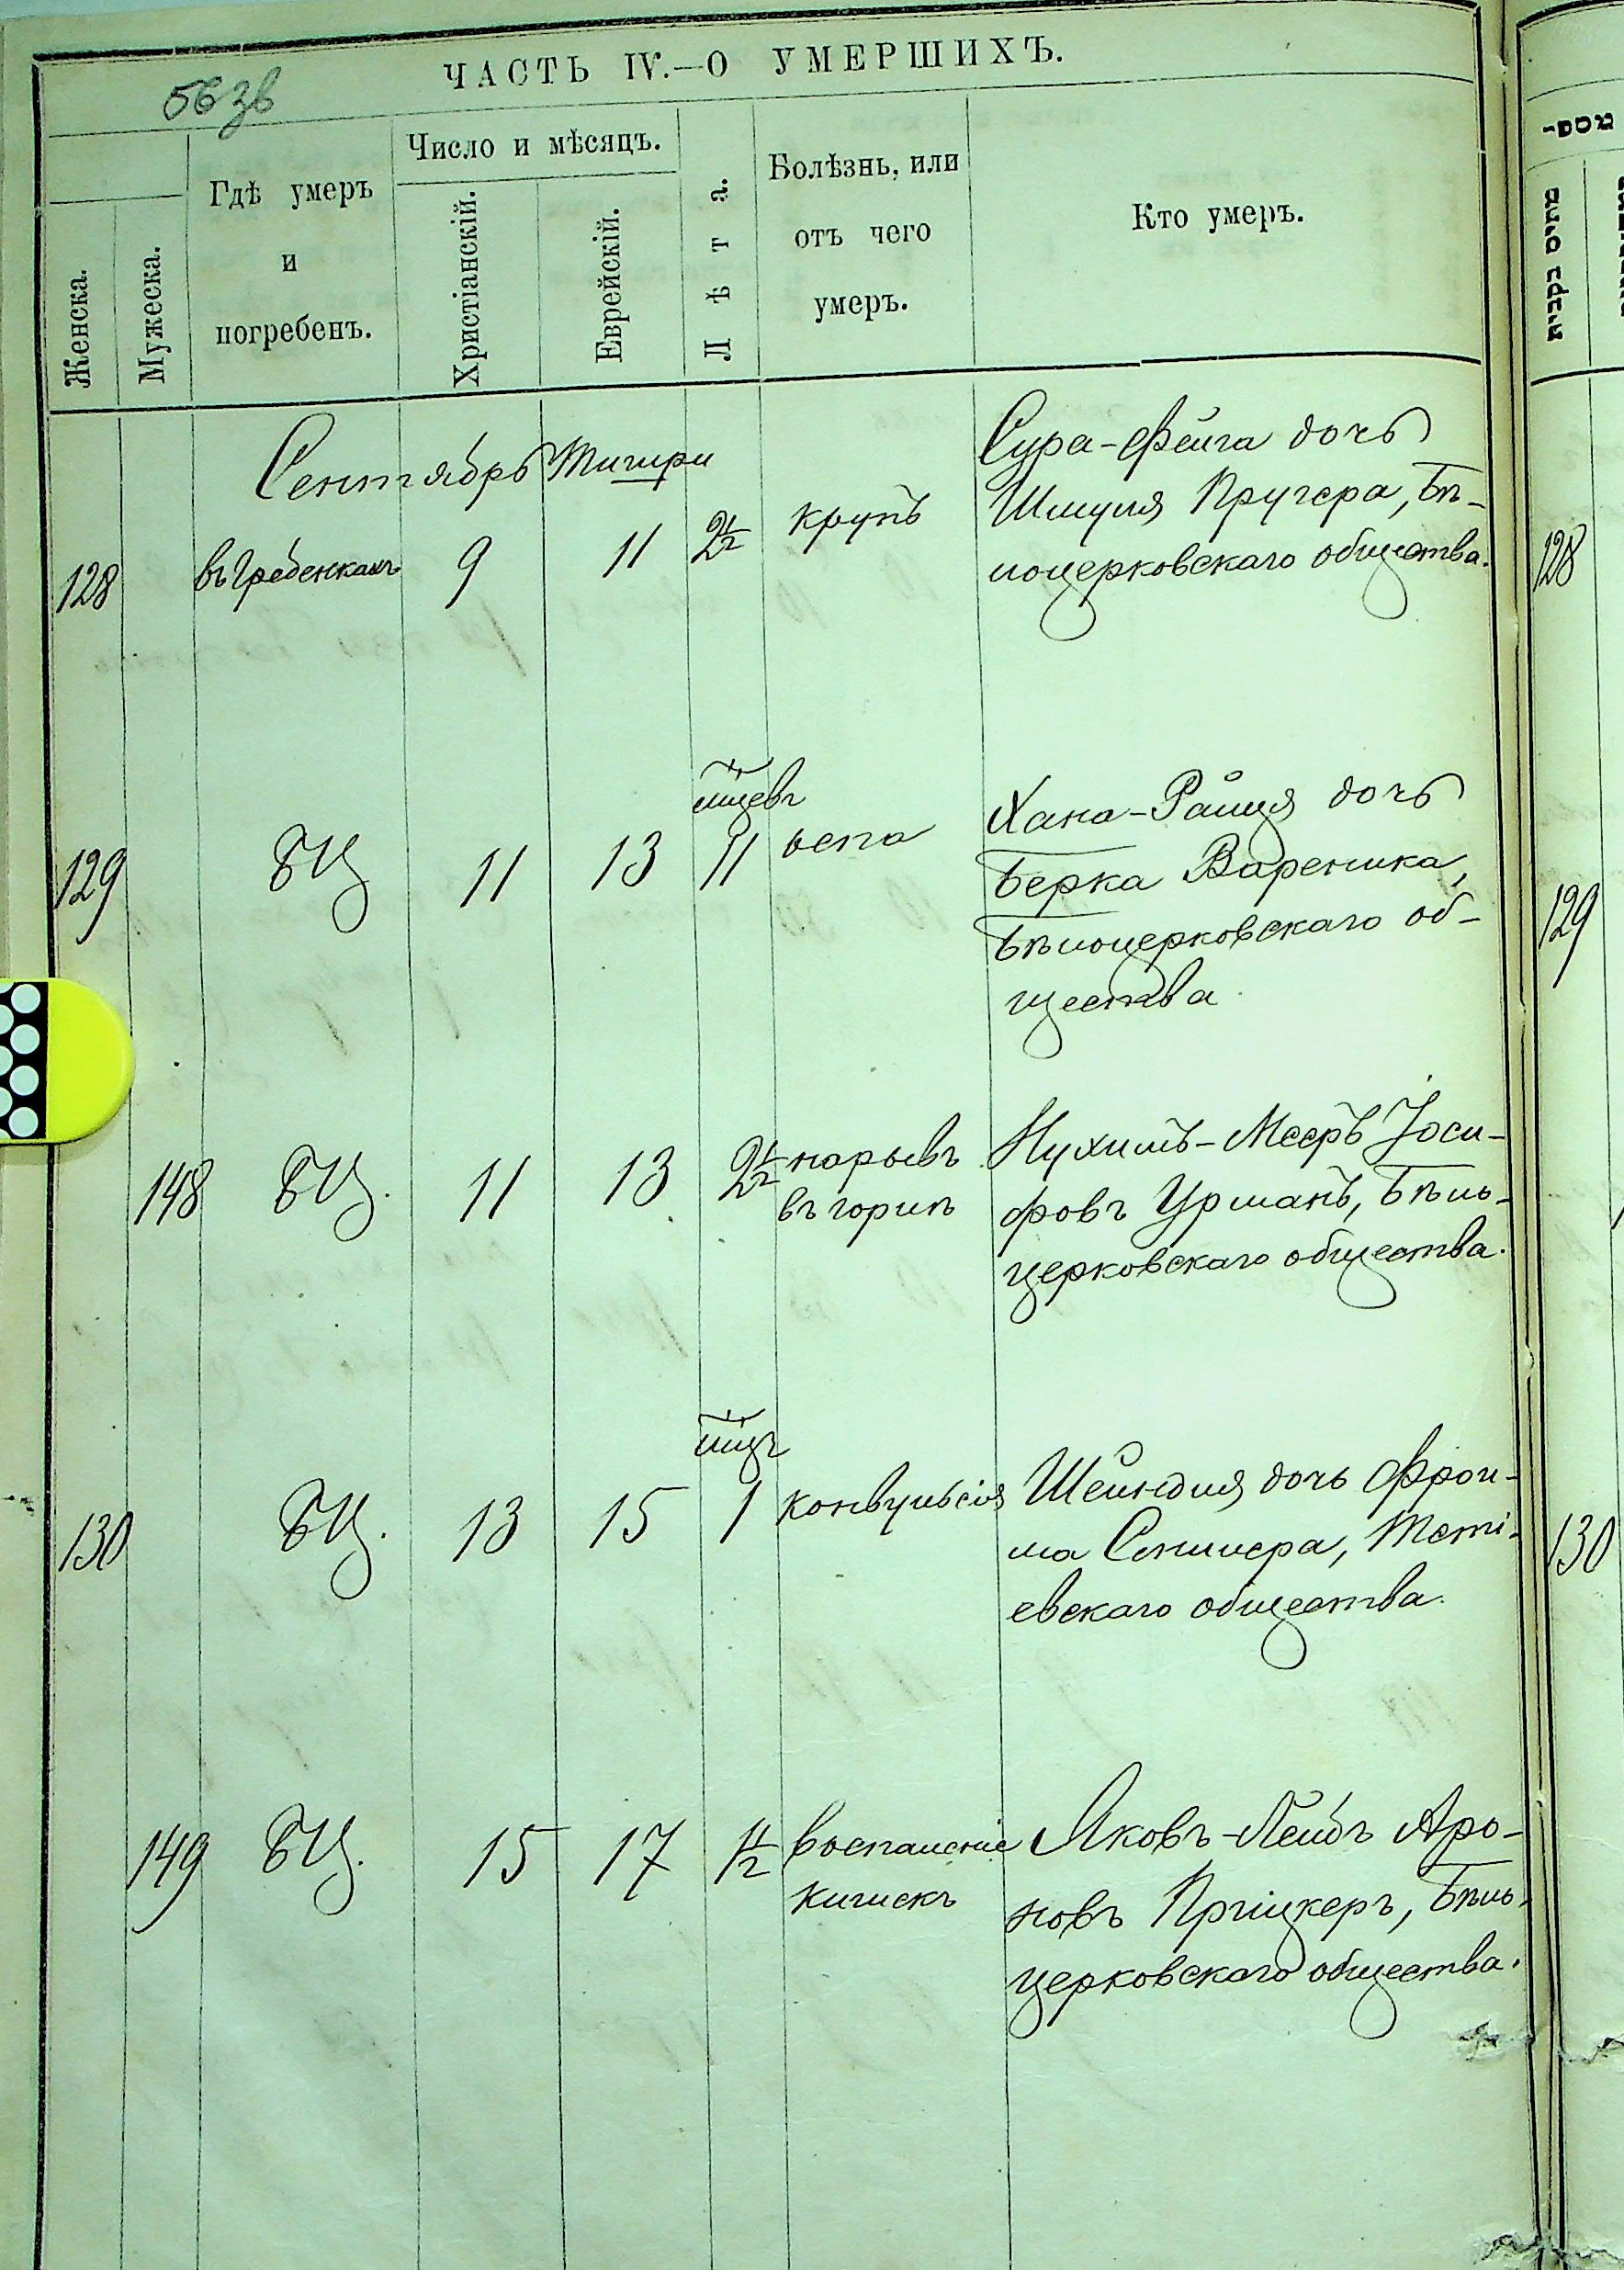 ЧАСТЬ IV.—О УМЕРШИХЪ.
56зв
Женска.
Мужеска.
Гдѣ умеръ
и
погребенъ.
Число и мѣсяцъ.
Христіанскій.
Еврейскій.
Лѣта.
Болѣзнь, или
отъ чего
умеръ.
Кто умеръ.
Сентябрь Тишри
128 въ Гребенкахъ 9 11 2½ крупъ
Сура-Фейга дочь
Шмуля Пругера, Бѣ-
лоцерковскаго общества.
128
мцевъ
129 БЦ 11 13 11 оспа
Хана-Райця дочь
Берка Вареника,
Бѣлоцерковскаго об-
щества.
129
148 БЦ. 11 13 2½ нарывъ
въ горлѣ
Нухимъ-Мееръ Іоси-
фовъ Урманъ, Бѣло-
церковскаго общества.
мцъ
130 БЦ. 13 15 1 конвульсія
Шейндля дочь Фрои-
ма Сеншера, Теті-
евскаго общества.
130
149 БЦ. 15 17 1½ воспаленіе
кишекъ
Яковъ-Лейбъ Аро-
новъ Прицкеръ, Бѣло-
церковскаго общества.